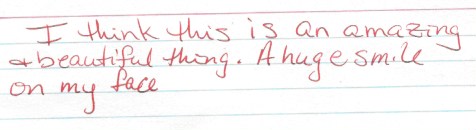 I think this is an amazing
& beautiful thing. A huge smile
on my face